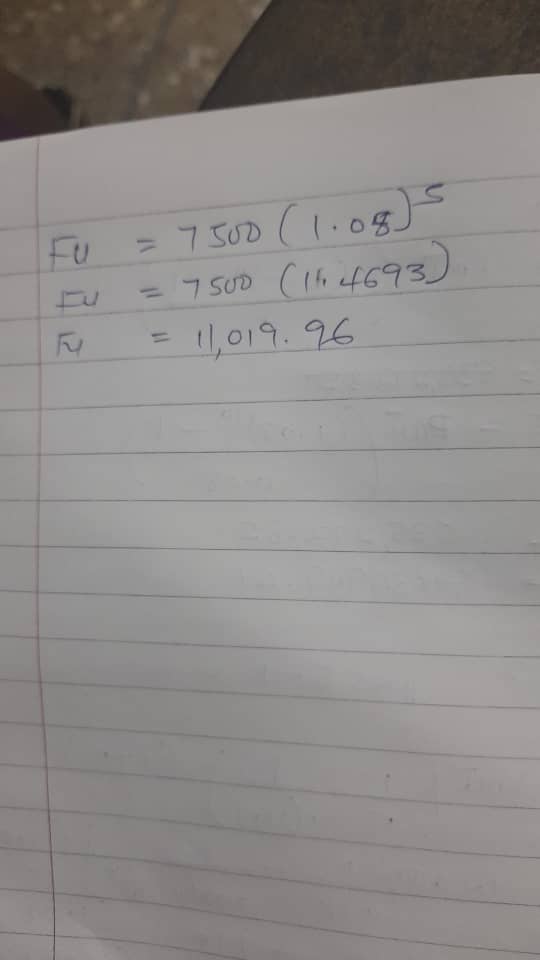 FV = 7500 (1.08)^5
FV = 7500 (1.4693)
FV = 11,019.96